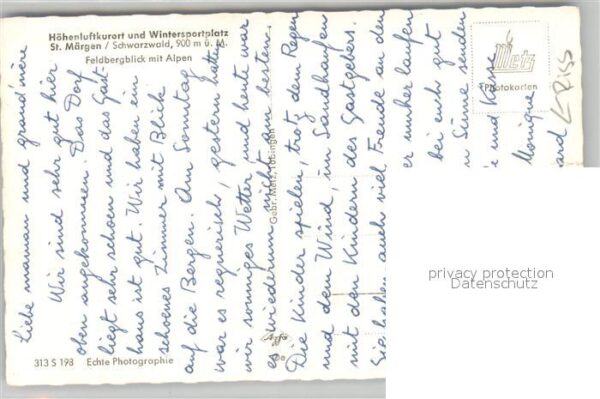 Höhenluftkurort und Wintersportplatz
St. Märgen / Schwarzwald, 900 m ü. M.
Feldbergblick mit Alpen
Liebe maman und grand'mère
Wir sind sehr gut hier
oben angekommen. Das Dorf
liegt sehr schoen und das Gast-
haus ist gut. Wir haben ein
schoenes Zimmer mit Blick
auf die Bergen. Am Sonntag
war es regnerisch, gestern hatten
wir sonniges Wetter und heute war
es wiederum nicht am besten.
Die Kinder spielen, trotz dem Regen
und dem Wind, im Sandhaufen
mit den Kindern des Gastgebers.
Sie haben auch viel Freude an den
umher laufen
bei euch gut
Süne senden
e und Küsse
Monique
and
Gebr. Metz, Tübingen
Metz
Photokarten
313 S 198 Echte Photographie
Agfa
privacy protection
Datenschutz